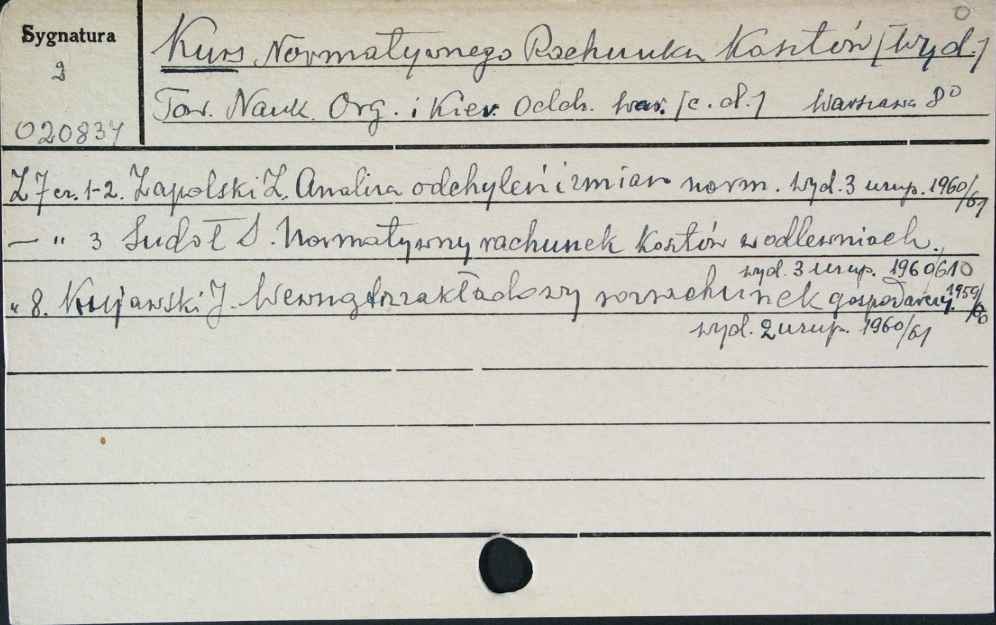 Sygnatura
2
020837
0
Kurs Normatywnego Rachunku Kosztów [Wyd.]
Tow. Nauk. Org. i Kier. Oddz. War. [c.d.] Warszawa 8°
Z 7 cz. 1-2. Zapolski Z. Analiza odchyleń i zmian norm. Wyd. 3 uzup. 1960/61
— " 3 Sudoł S. Normatywny rachunek kosztów w odlewniach.
wyd. 3 uzup. 1960/610
" 8. Kujawski J. Wewnątrzzakładowy rozrachunek gospodarczy. 1959/60
wyd. 2 uzup. 1960/61